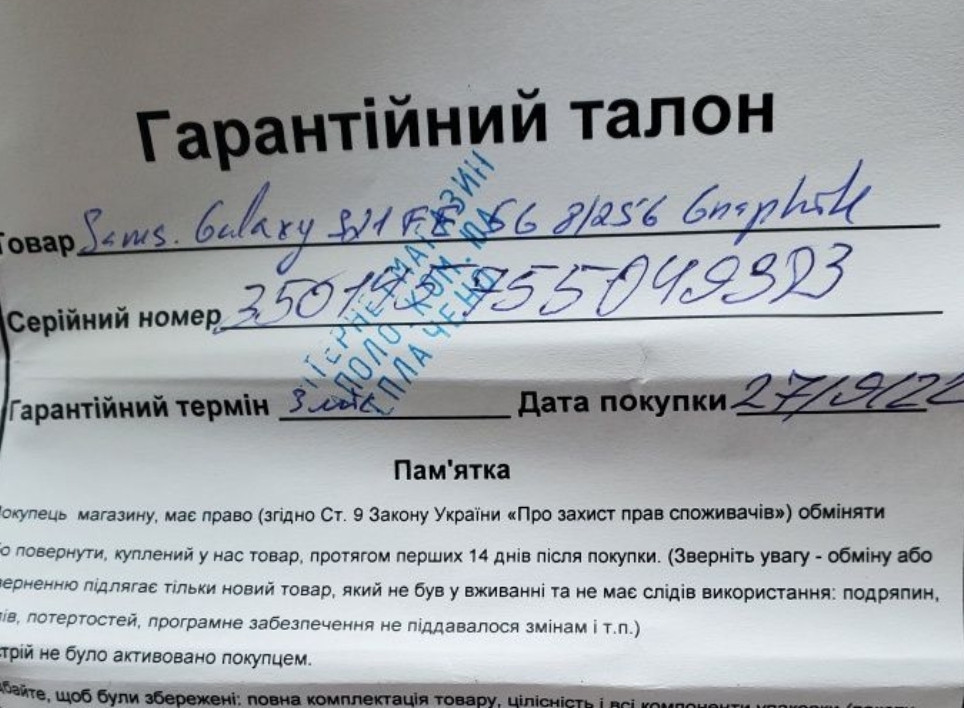 Гарантійний талон
Товар Sams. Galaxy S21 FE 5G 8/256 Graphite
Серійний номер 350195755049923
ІНТЕРНЕТ МАГАЗИН
ПОЛО КОМ. ЮА
СПЛАЧЕНО
Гарантійний термін 3 міс Дата покупки 27/9/22
Пам'ятка
окупець магазину, має право (згідно Ст. 9 Закону України «Про захист прав споживачів») обміняти
о повернути, куплений у нас товар, протягом перших 14 днів після покупки. (Зверніть увагу - обміну або
верненню підлягає тільки новий товар, який не був у вживанні та не має слідів використання: подряпин,
ів, потертостей, програмне забезпечення не піддавалося змінам і т.п.)
трій не було активовано покупцем.
байте, щоб були збережені: повна комплектація товару, цілісність і всі компоненти упаковки